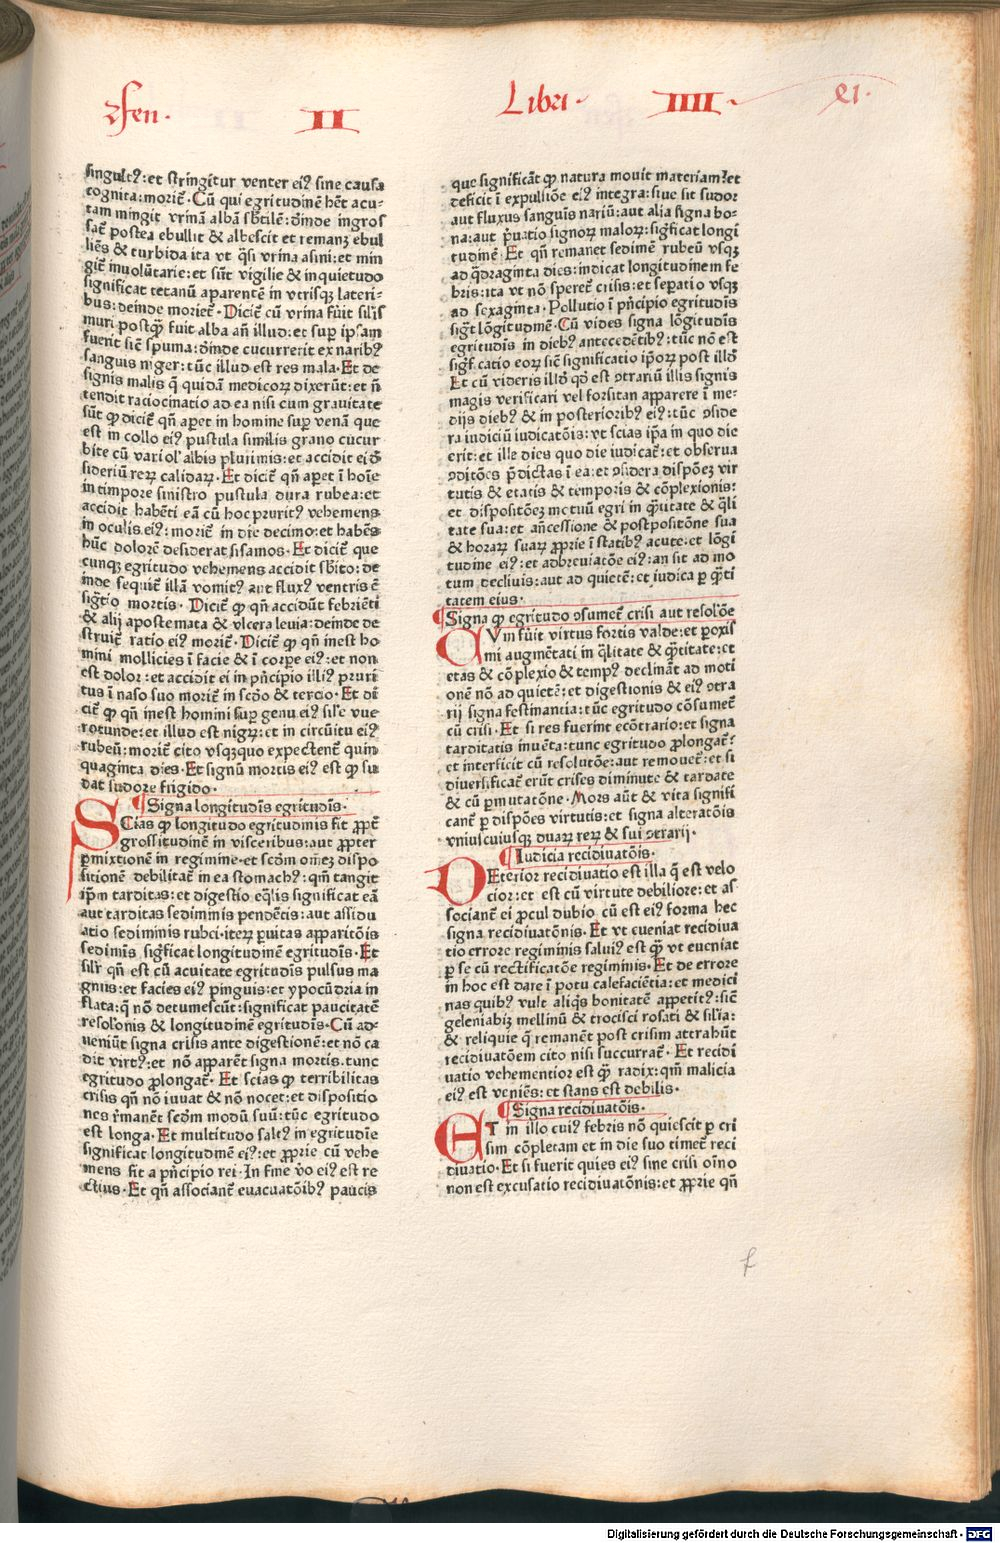 Fen. II Libri IIII XI.
singultꝰ: et stringitur venter eiꝰ sine causa
cognita: moriet̃. Cũ qui egritudinẽ hẽt acu-
tam mingit vrinã albã sbtilẽ: ðinde ingros
sat̃ postea ebullit & albescit et remanꝫ ebul
liẽs & turbida ita vt q̃si vrina asini: et min
git̃ inuolũtarie: et sũt vigilie & inquietudo
significat tetanũ aparentẽ in vtrisqꝫ lateri-
bus: deinde moriet̃. Dicit̃ cũ vrina fũit sil'is
muri postq̃ꝫ fuit alba añ illud: et sup̱ ip̃sam
fuerit sic̃ spuma: ðinde cucurrerit ex naribꝰ
sanguis niger: tũc illud est res mala. Et de
signis malis q̃ quidã medicoꝝ dixerũt: et ñ
tendit raciocinatio ad ea nisi cum grauitate
sũt ꝙ dicit̃ qñ apet in homine sup̱ venã que
est in collo eiꝰ pustula similis grano cucur
bite cũ variol' albis plurimis: et accidit ei ð
sideriũ reꝝ calidaꝝ. Et dicit̃ qñ apet ĩ hoĩe
in timpore sinistro pustula dura rubea: et
accidit habẽti eã cũ hoc pruritꝰ vehemens
in oculis eiꝰ: moriet̃ in die decimo: et habẽs
hũc dolorẽ desiderat sisamos. Et dicit̃ que
cunqꝫ egritudo vehemens accidit sbito: de
inde sequit̃ illã vomitꝰ aut fluxꝰ ventris ẽ
sig̃tio mortis. Dicit̃ ꝙ qñ accidũt febriẽti
& alij apostemata & vlcera leuia: deinde de
struit̃ ratio eiꝰ moriet̃. Dicit̃ ꝙ qñ inest ho
mini mollicies ĩ facie & ĩ corpe eiꝰ: et non
est dolor: et accidit ei in pñcipio illiꝰ pruri
tus ĩ naso suo moriet̃ in sc̃do & tercio. Et di
cit̃ ꝙ qñ inest homini sup̱ genu eiꝰ sil'e vue
rotunde: et illud est nigꝝ: et in circũitu eiꝰ
rubeũ: moriet̃ cito vsqꝫquo expectent̃ quin
quaginta dies. Et signũ mortis eiꝰ est ꝙ su
dat sudore frigido.
¶ Signa longitudĩs egritudĩs.
SCias ꝙ longitudo egritudinis fit ꝓpt̃
grossitudinẽ in visceribus: aut ꝓpter
p̱mixtionẽ in regimine: et scd̃m om̃eꝫ dispo
sitionẽ debilitat̃ in ea stomachꝰ: qm̃ tangit
ip̃m tarditas: et digestio eq̃lis significat eã
aut tarditas sediminis pendẽtis: aut assidu
atio sediminis rubei. iteꝝ p̱uitas apparitõis
sedimĩs sig̃ficat longitudinẽ egritudĩs. Et
sil'r qñ est cũ acuitate egritudĩs pulsus ma
gnus: et facies eiꝰ pinguis: et ypocũdria in
flata: q̃ nõ detumescũt: significat paucitatẽ
resol'onis & longitudinẽ egritudĩs. Cũ ad-
ueniũt signa crisis ante digestionẽ: et nõ ca
dit virtꝰ: et nõ apparẽt signa mortis. tunc
egritudo ꝓlongat̃. Et scias ꝙ terribilitas
crisis qñ nõ iuuat & nõ nocet: et dispositio
nes r̃manẽt scd̃m modũ suũ: tũc egritudo
est longa. Et multitudo saltꝰ in egritudĩe
significat longitudinẽ eiꝰ: et ꝓprie cũ vehe
mens fit a pñcipio rei. In fine v̾o eiꝰ est re
ctius. Et qñ associant̃ euacuatõibꝰ paucis
que significãt ꝙ natura mouit materiam: et
deficit ĩ expulsiõe eiꝰ integra: siue sit sudor
aut fluxus sanguis nariũ: aut alia signa bo-
na: aut p̱uatio signoꝝ maloꝝ: sig̃ficat longi
tudinẽ. Et qñ remanet sedimẽ rubeũ vsqꝫ
ad q̃draginta dies: indicat longitudinem fe
bris: ita vt nõ speret̃ crisis: et sep̱atio vsqꝫ
ad sexaginta. Pollutio ĩ pñcipio egritudĩs
sig̃t lõgitudinẽ. Cũ vides signa lõgitudĩs
egritudĩs in diebꝰ antecedẽtibꝰ: tũc nõ est
sig̃ficatio eoꝝ sic̃ significatio ip̃oꝝ post illð
Et cũ videris illð qð est ↄtrariũ illis signis
magis verificari vel forsitan apparere ĩ me-
dijs diebꝰ & in posterioribꝰ eiꝰ: tũc ↄside
ra iudiciũ iudicatõis: vt scias ip̃a in quo die
erit: et ille dies quo die iudicat̃: et obserua
ↄditões p̃dictas ĩ ea: et ↄsidera dispõeꝫ vir
tutis & etatis & temporis & cõplexionis:
et dispositõeꝫ motuũ egri in q̃ntitate & q̃li
tate sua: et añcessione & postpositõne sua
& horaꝝ suaꝝ ꝓprie ĩ statibꝰ acute: et lõgi
tudine eiꝰ: et adbreuiatõe eiꝰ: an sit ad mo
tum decliuis: aut ad quietẽ: et iudica p̱ q̃nti
tatem eius.
¶ Signa ꝙ egritudo ↄsumet̃ crisi aut resol'õe
CVm fũit virtus fortis valde: et p̱oxis
mi augmẽtati in q̃litate & q̃ntitate: et
etas & cõplexio & tempꝰ declinãt ad moti
onẽ nõ ad quietẽ: et digestionis & eiꝰ ↄtra
rij signa festinantia: tũc egritudo cõsumet̃
cũ crisi. Et si res fuerint ecõtrario: et signa
tarditatis inuẽta: tunc egritudo ꝓlongat̃:
et interficit cũ resolutõe: aut remouet̃: et si
diuersificat̃ erũt crises diminute & tardate
& cũ p̱mutatõne. Mors aũt & vita signifi
cant̃ p̱ dispões virtutis: et signa alteratõis
vniuscuiusqꝫ duaꝝ reꝝ & sui ↄtrarij.
¶ Iudicia recidiuatõis.
DEterior recidiuatio est illa q̃ est velo
cior: et est cũ virtute debiliore: et as
sociant̃ ei ꝓcul dubio cũ est eiꝰ forma hec
signa recidiuatõnis. Et vt eueniat recidiua
tio errore regiminis saluiꝰ est q̃ꝫ vt eueniat
p̱ se cũ rectificatõe regiminis. Et de errore
in hoc est dare ĩ potu calefaciẽtia: et medici
nas quibꝰ vult aliq̃s bonitatẽ appetitꝰ: sic̃
geleniabiꝫ mellinũ & trocisci rosati & sil'ia:
& reliquie q̃ remanẽt post crisim attrahũt
recidiuatõem cito nisi succurrat̃. Et recidi
uatio vehementior est q̃ꝫ radix: qm̃ malicia
eiꝰ est veniẽs: et stans est debilis.
¶ Signa recidiuatõis.
ET in illo cuiꝰ febris nõ quiescit p̱ cri
sim cõpletam et in die suo timet̃ reci
diuatio. Et si fuerit quies eiꝰ sine crisi oĩno
non est excusatio recidiuatõnis: et ꝓprie qñ
f
Digitalisierung gefördert durch die Deutsche Forschungsgemeinschaft · DFG